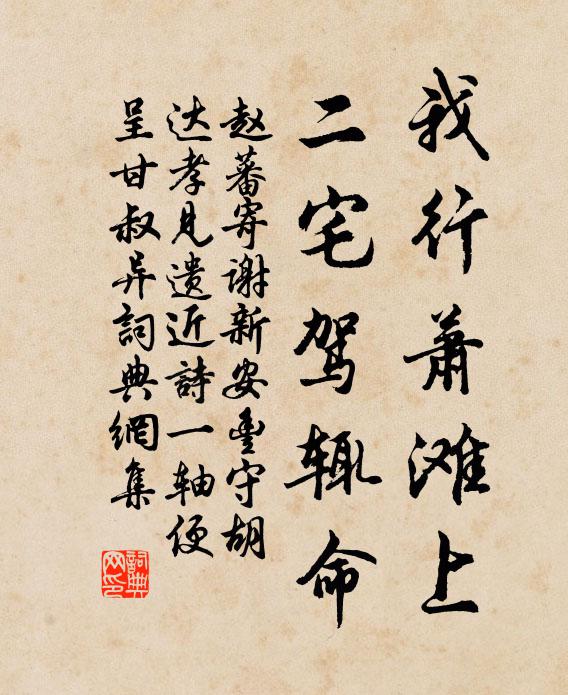 我行萧滩上
二宅驾辄命
赵蕃寄谢新安曹守胡
达孝见遗近詩一轴便
呈甘叔异詞典網集
詞典网印